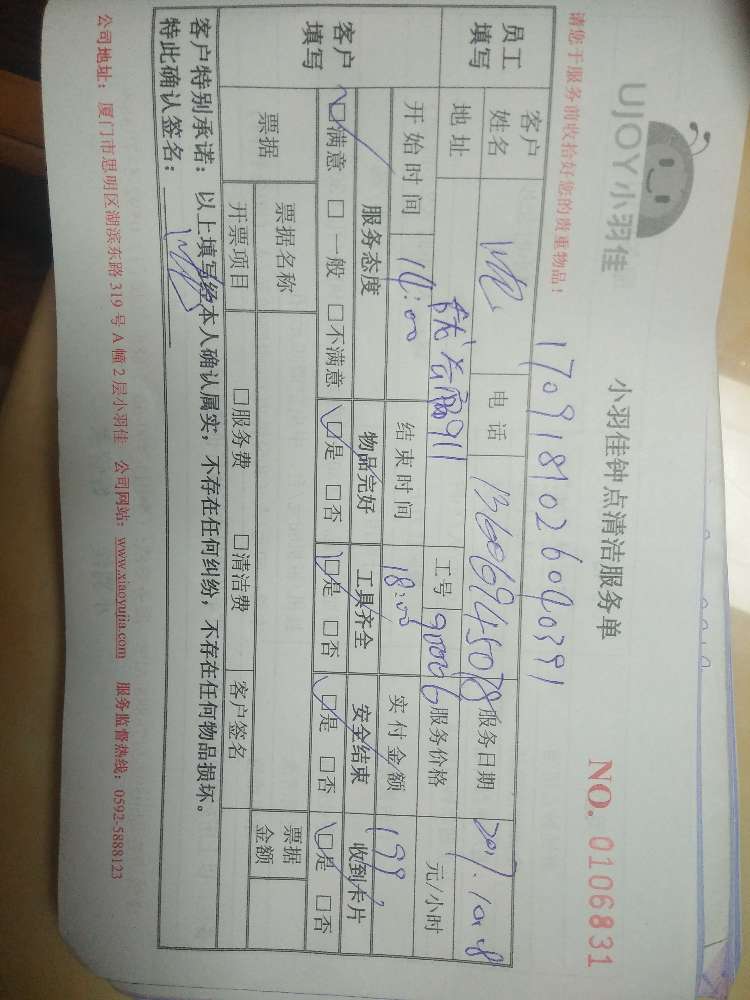 UJOY小羽佳
小羽佳钟点清洁服务单
NO. 0106831
请您于服务前收拾好您的贵重物品！
1709181026090391
员工填写
客户姓名
电话 13606945078
服务日期 2017.10.8
地址 911
工号 90006
服务价格 元/小时
开始时间 14:00
结束时间 18:00
实付金额 199
客户填写
服务态度 物品完好 工具齐全 安全结束 收到卡片
□满意 □一般 □不满意 □是 □否 □是 □否 □是 □否 □是 □否
票据
票据名称
票据金额
开票项目 □服务费 □清洁费 客户签名
客户特别承诺：以上填写经本人确认属实，不存在任何纠纷，不存在任何物品损坏。
特此确认签名：
公司地址：厦门市思明区湖滨东路 319 号 A 幢 2 层小羽佳 公司网站：www.xiaoyujia.com 服务监督热线：0592-5888123